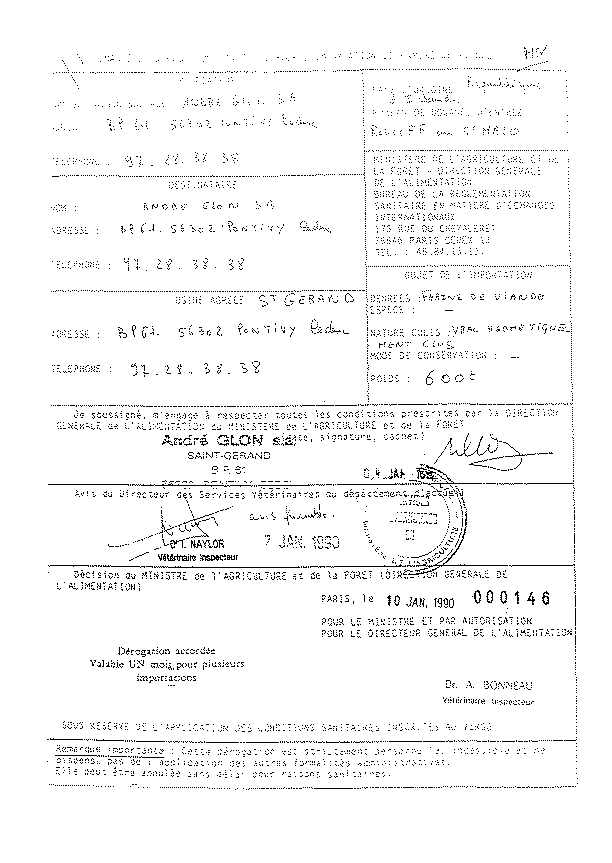 ANDRE GLON SA
République
BP 61 56302 PONTIVY Cedex
BUREAU DE DOUANE D'ENTREE
ROSCOFF ou ST MALO
TELEPHONE : 97.28.38.38
MINISTERE DE L'AGRICULTURE ET DE
LA FORET - DIRECTION GENERALE
DE L'ALIMENTATION
BUREAU DE LA REGLEMENTATION
SANITAIRE EN MATIERE D'ECHANGES
INTERNATIONAUX
175 RUE DU CHEVALERET
75646 PARIS CEDEX 13
TEL. : 45.84.13.13.
DESTINATAIRE
NOM : ANDRE GLON SA
ADRESSE : BP 61. 56302 PONTIVY Cedex
TELEPHONE : 97.28.38.38
OBJET DE L'IMPORTATION
USINE AGREEE ST GERAND
DENREES : FARINE DE VIANDE
ESPECE : —
ADRESSE : BP 61. 56302 PONTIVY Cedex
NATURE COLIS : VRAC HERMETIQUE
MENT CLOS
MODE DE CONSERVATION : —
TELEPHONE : 97.28.38.38
POIDS : 600t
Je soussigné, m'engage à respecter toutes les conditions prescrites par la DIRECTION
GENERALE de l'ALIMENTATION du MINISTERE de l'AGRICULTURE et de la FORET
André GLON s.a.
(date, signature, cachet)
SAINT-GERAND
B.P. 61
04 JAN. 1990
Avis du Directeur des Services Vétérinaires du département
avis favorable.
Dr I. NAYLOR
Vétérinaire Inspecteur
7 JAN. 1990
Décision du MINISTRE de l'AGRICULTURE et de la FORET (DIRECTION GENERALE DE
L'ALIMENTATION)
PARIS, le 10 JAN. 1990 000146
POUR LE MINISTRE ET PAR AUTORISATION
POUR LE DIRECTEUR GENERAL DE L'ALIMENTATION
Dérogation accordée
Valable UN mois pour plusieurs
importations
Dr. A. BONNEAU
Vétérinaire Inspecteur
SOUS RESERVE DE L'APPLICATION DES CONDITIONS SANITAIRES INSCRITES AU VERSO
Remarque importante : Cette dérogation est strictement personnelle, incessible et ne
dispense pas de l'application des autres formalités administratives.
Elle peut être annulée sans délai pour raisons sanitaires.